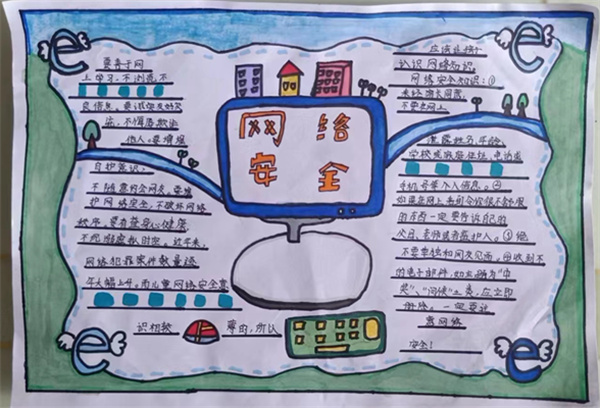 要善于网
上学习,不浏览不
良信息。要诚实友好交
流,不侮辱欺诈
他人。要增强
自护意识,
不随意约会网友。要维
护网络安全,不破坏网络
秩序。要有益身心健康,
不沉溺虚拟时空。近年来,
网络犯罪案件数量逐
年大幅上升。而儿童网络安全意
识相较
薄的,所以
网络
安全
应该让孩子
认识网络知识。
网络安全知识:①
未经家长同意,
不要在网上
泄露姓名、年龄、
学校或家庭住址、电话或
手机号等个人信息。②
如果在网上看到令你很不舒服
的东西一定要告诉自己的
父母、老师或者监护人。③绝
不要单独和网友见面。④收到不
的电子邮件,如主题为“中
奖”、“问候”之类,应立即
删除。一定要注
意网络
安全!